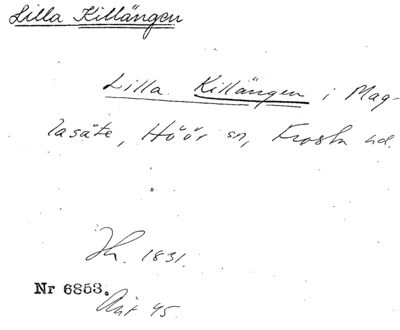 Lilla Killängen
Lilla Killängen i Mag-
lasäte, Höör sn, Frosta hd.
1831.
Nr 6853.
45.